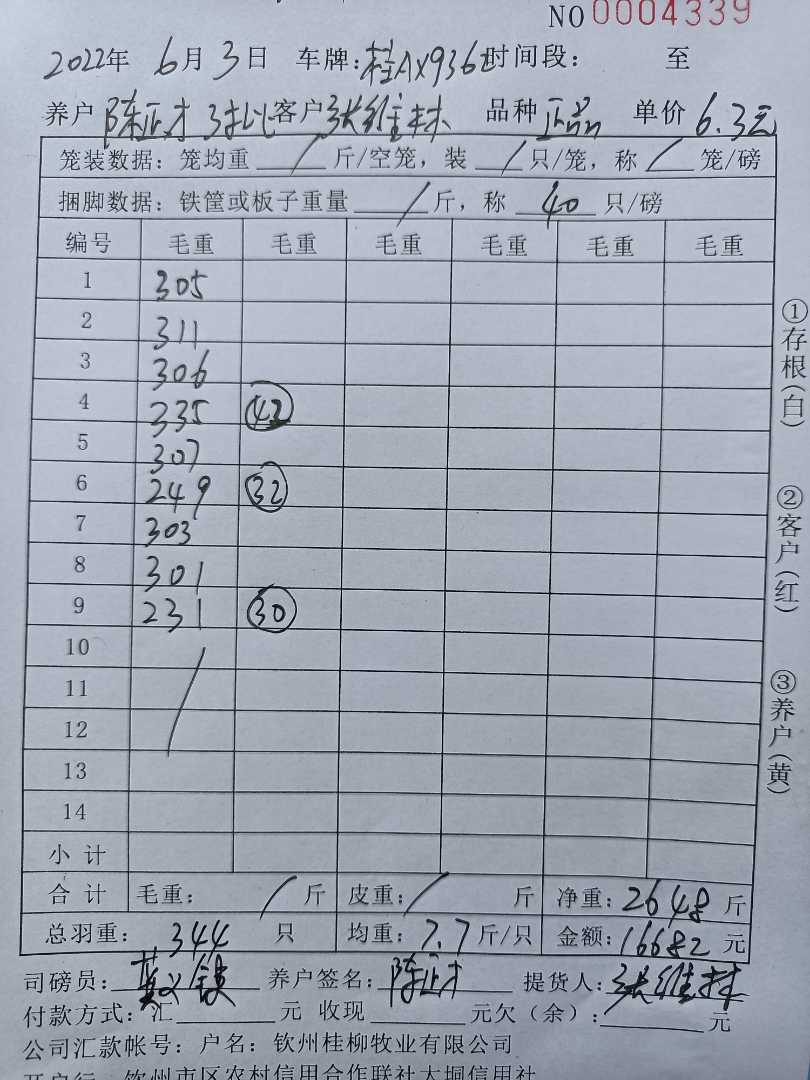 NO 0004339
2022年 6月3日 车牌:桂AX936 时间段: 至
养户 陈正才 客户 张维林 品种 正品 单价 6.3元
笼装数据: 笼均重 / 斤/空笼, 装 / 只/笼, 称 / 笼/磅
捆脚数据: 铁筐或板子重量 / 斤, 称 40 只/磅
编号 毛重 毛重 毛重 毛重 毛重 毛重
1 305
2 311
3 306
4 335 42
5 307
6 249 32
7 303
8 301
9 231 30
10
11
12
13
14
小计
合计 毛重: / 斤 皮重: / 斤 净重: 2648 斤
总羽重: 344 只 均重: 7.7 斤/只 金额: 16682 元
司磅员: 养户签名: 陈正才 提货人: 张维林
付款方式: 汇 元 收现 元欠(余): 元
公司汇款帐号: 户名: 钦州桂柳牧业有限公司
开户行: 钦州市区农村信用合作联社大垌信用社
①存根(白)
②客户(红)
③养户(黄)